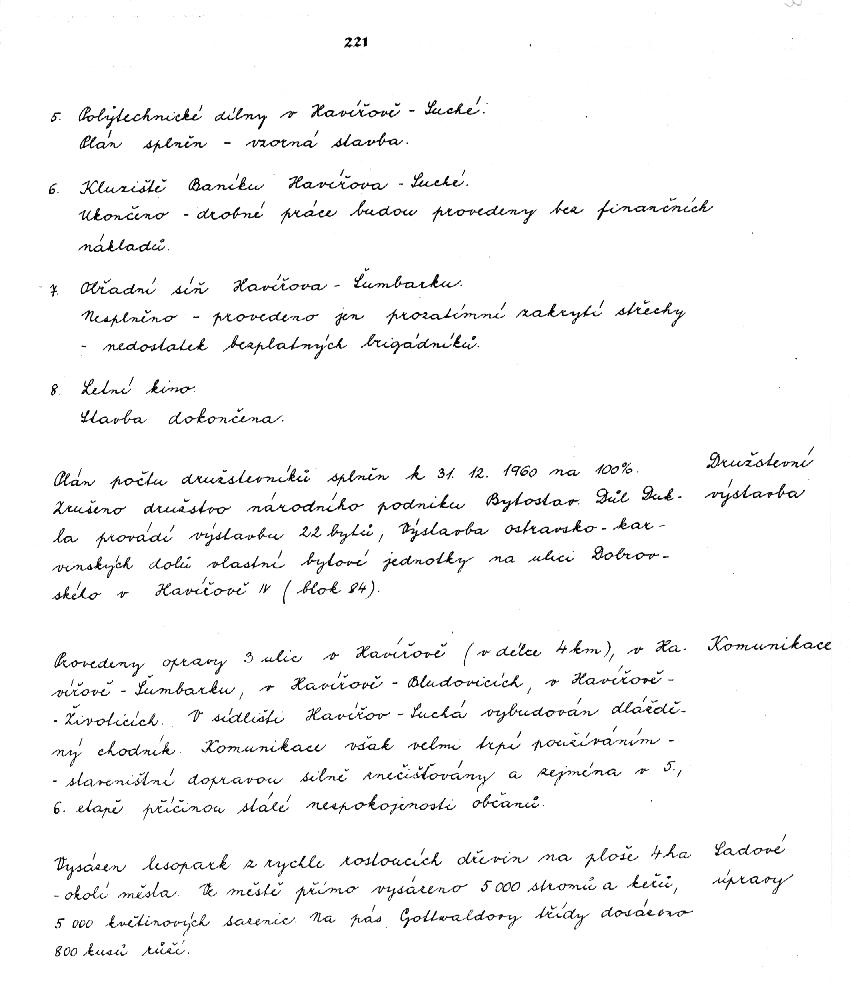 221
5. Polytechnické dílny v Havířově - Suché.
Plán splněn - vzorná stavba.
6. Kluziště Baníku Havířova - Suché.
Ukončeno - drobné práce budou provedeny bez finančních
nákladů.
7. Obřadní síň Havířova - Šumbarku.
Nesplněno - provedeno jen prozatímní zakrytí střechy
- nedostatek bezplatných brigádníků.
8. Letní kino.
Stavba dokončena.
Družstevní
výstavba
Plán počtu družstevníků splněn k 31. 12. 1960 na 100%.
Zrušeno družstvo národního podniku Bytostav. Důl Duk-
la provádí výstavbu 22 bytů, Výstavba ostravsko-kar-
vinských dolů vlastní bytové jednotky na ulici Dobrov-
ského v Havířově IV (blok 84).
Komunikace
Provedeny opravy 3 ulic v Havířově (v délce 4 km), v Ha-
vířově - Šumbarku, v Havířově - Bludovicích, v Havířově -
- Životicích. V sídlišti Havířov - Suchá vybudován dláždě-
ný chodník. Komunikace však velmi trpí používáním -
- staveništní dopravou silně znečišťovány a zejména v 5.,
6. etapě příčinou stálé nespokojenosti občanů.
Sadové
úpravy
Vysázen lesopark z rychle rostoucích dřevin na ploše 4 ha
- okolí města. Ve městě přímo vysázeno 5 000 stromů a keřů,
5 000 květinových sazenic. Na pás Gottwaldovy třídy dosázeno
800 kusů růží.